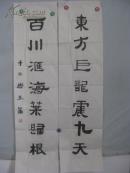 東方巨龍震九天
百川滙海葉歸根